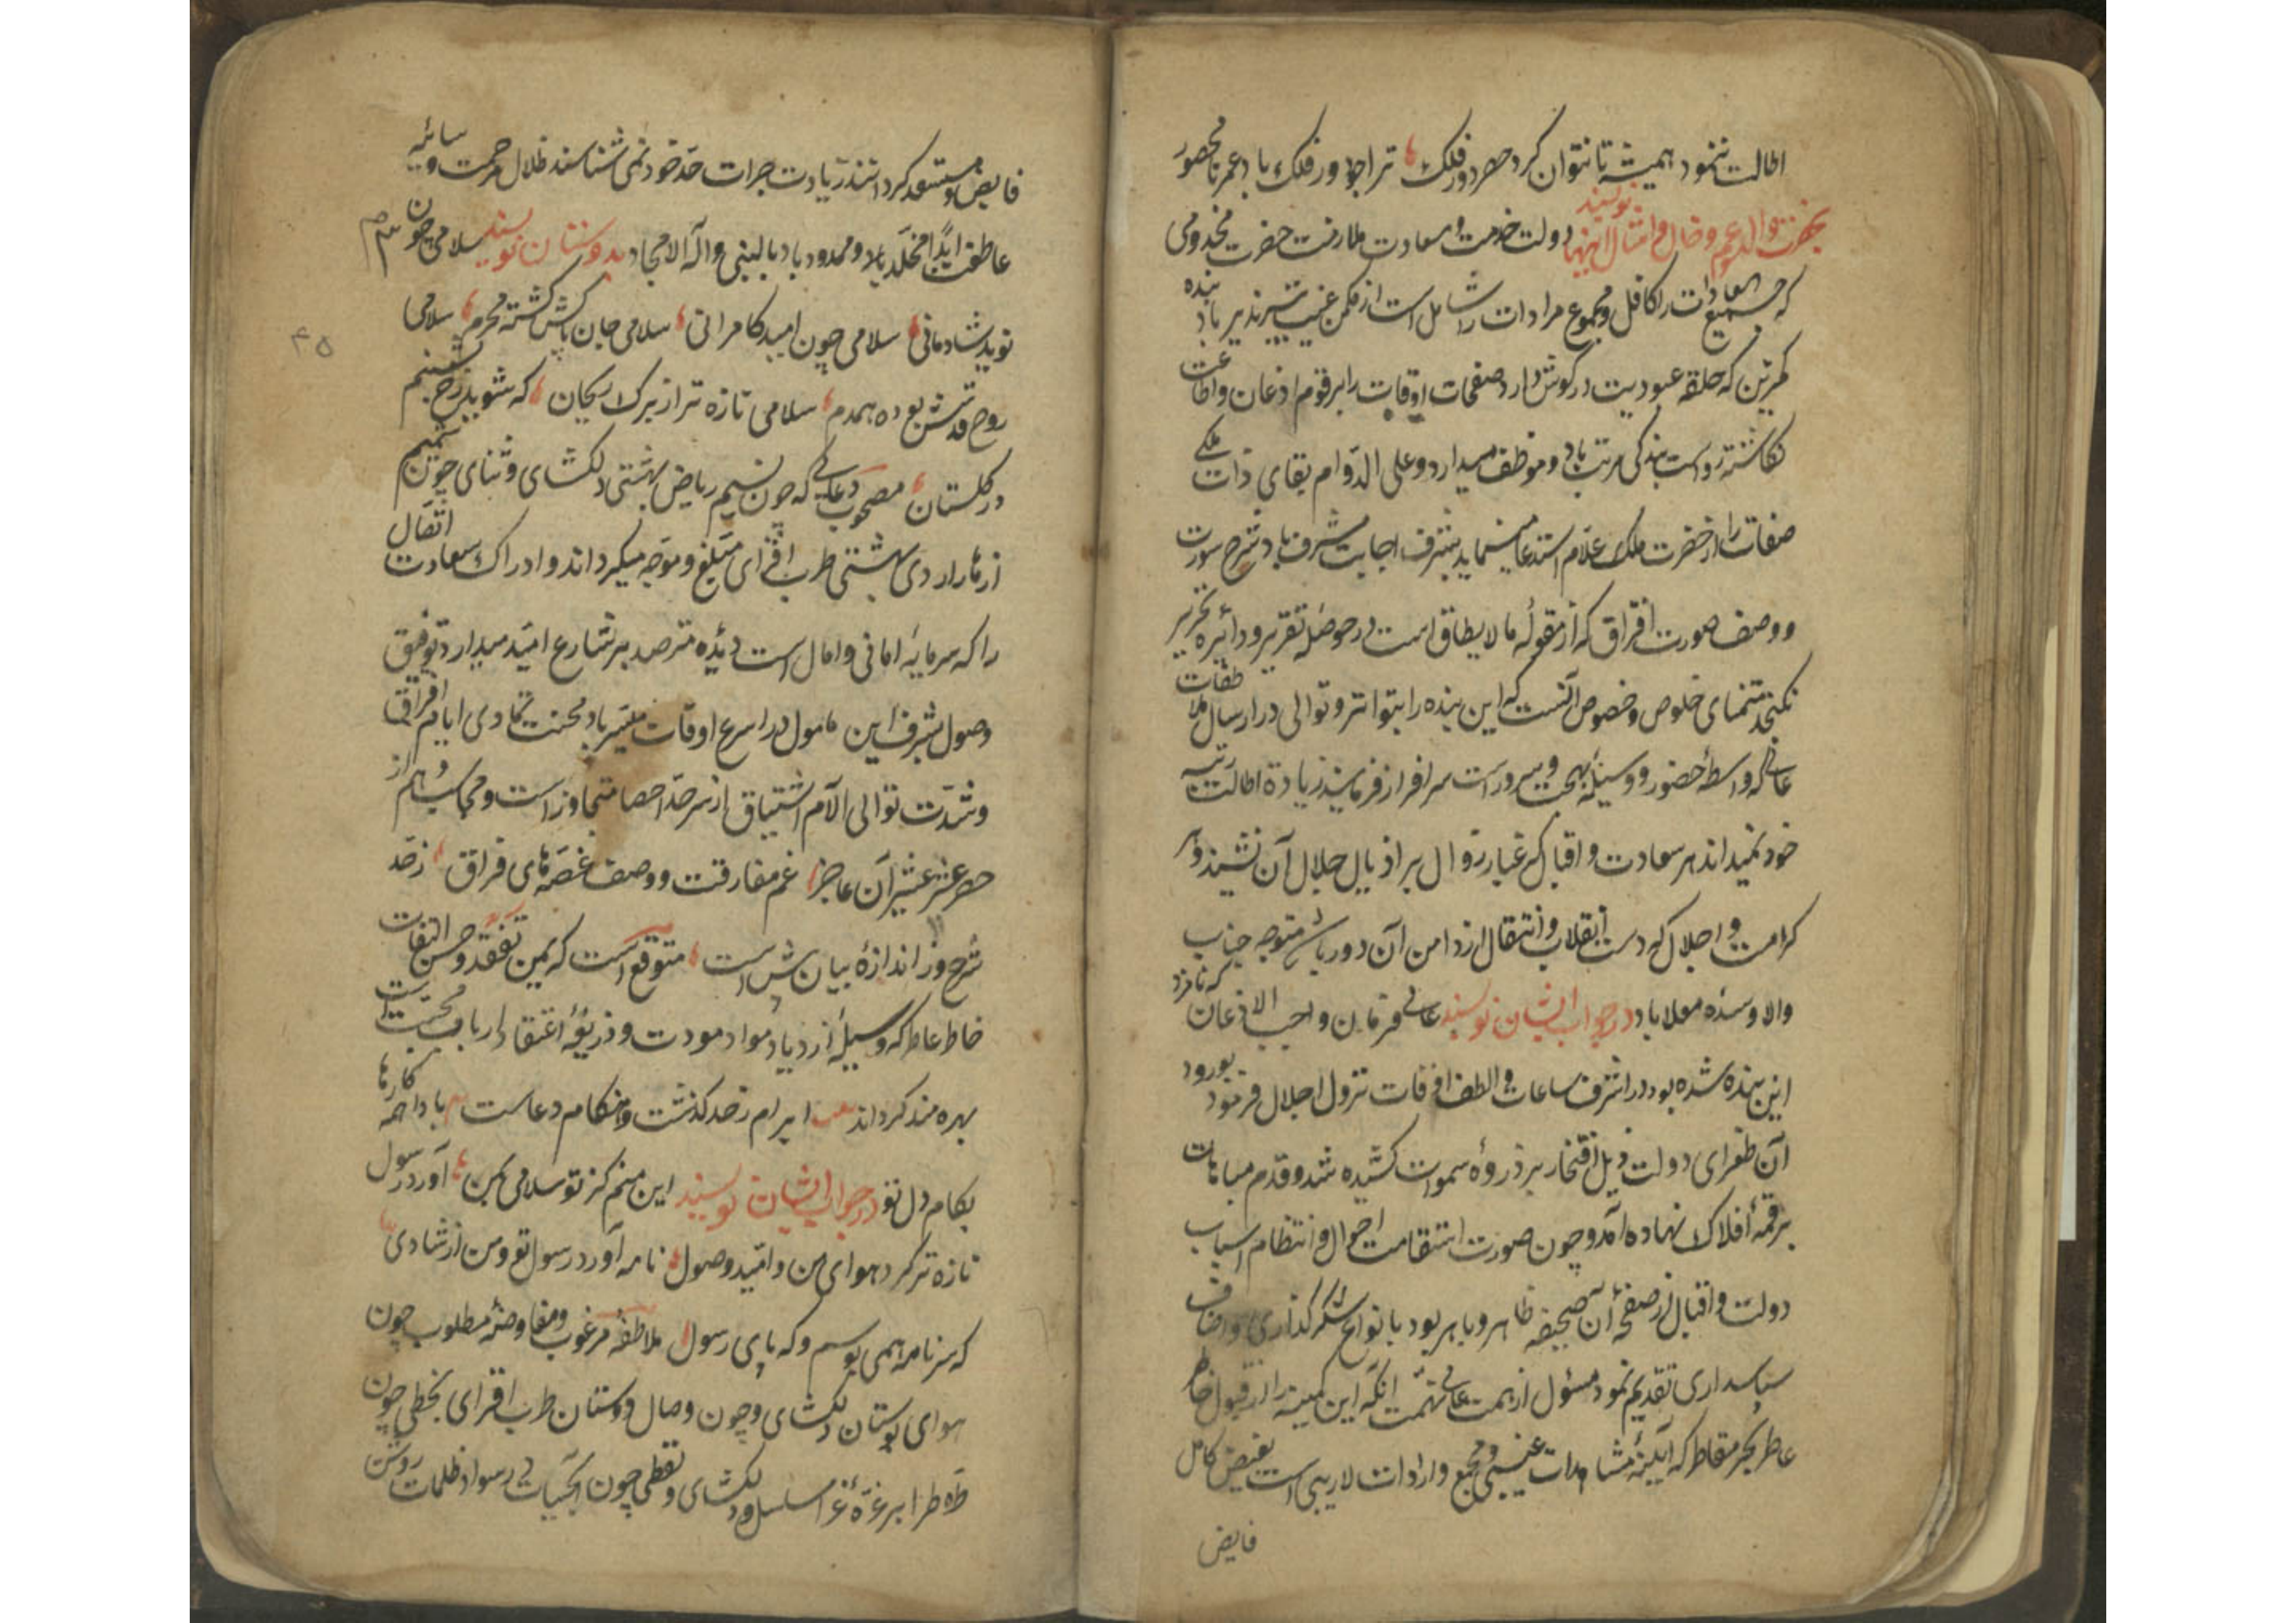 اطالت ننمود همیشه تا نتوان کرد حصر دور فلک تراجو دور فلک باد عمر نامحصور
بحضرت والد و عم و خال و امثال اینها نویسند دولت خدمت و سعادت ملازمت حضرت مخدومی
که جمیع سعادات را کافل و مجموع مرادات را شامل است از مکمن غیب تیسیر پذیر باد بنده
کمترین که حلقه عبودیت در کوش دارد و صفحات اوقات را برقوم اذعان و اطاعت
نکاشته رواست بندکی مرتب باد و موظف میدارد و علی الدوام بقای ذات ملکی
صفات را از حضرت ملک علام استدعا مینماید بشرف اجابت مشرف باد شرح سورت
و وصف صورت افراق که از مقوله ما لا یطاق است در حوصله تقریر و دائره تحریر
نکنجد متمنای خلوص و خصوص آنست که این بنده را بتواتر و توالی در ارسال ملاطفات
عالی که واسطه حضور و وسیله بهجت و سرور است سرافراز فرمایند زیادة اطالت رتبه
خود نمیداند هر سعادت و اقبال که غبار زوال بر اذیال جلال آن نشیند و هر
کرامت و اجلال که دست انقلاب و انتقال از دامن آن دور باش متوجه جناب
والا و سده معلا باد در جواب ایشان نویسند عالی فرمان واجب الاذعان که نامزد
این بنده شده بود در اشرف ساعات و الطف اوقات نزول اجلال فرمود بورود
آن طغرای دولت ذیل افتخار بر ذروه سموات کشیده شد و قدم مباهات
بر قمه افلاک نهاده آمد و چون صورت استقامت احوال و انتظام اسباب
دولت و اقبال در صفحه آن صحیفه ظاهر و باهر بود بانواع شکر گذاری و اصناف
سپاسداری تقدیم نمود مسئول از همت عالی نهمت آنکه این کمینه را از قبول خاطر
عاطر بحر مقاطر که آیینه مشاهدات غیبی و مجمع واردات لاریبی است بفیض کامل
فایض
فایض و مستعد کردانند زیادت جرات حد خود نمی شناسند ظلال مرحمت و سایه
عاطفت ابدا مخلد بلاد و ممدود باد بالنبی و آله الامجاد بدوستان نویسند سلامی چون
نوید شادمانی سلامی چون امید کامرانی سلامی جان پاکش کشته محرم سلامی
۴۵
روح قدسش بوده همدم سلامی تازه تر از برک ریحان که شوید رخ بشبنم
در کلستان مصحوب دعائی که چون نسیم ریاض بهشتی دلکشای و ثنای چون شمیم
ازهار اردی بهشتی طرب افزای مبلغ و موجه میکرداند و ادراک سعادت اتصال
را که سرمایه امانی و امال است دیده مترصد بر شارع امید میدارد توفیق
وصول بشرف این مامول در اسرع اوقات میسر باد محنت تمادی ایام افراق
و شدت توالی الآم اشتیاق از سر حد احصا متجاوز است و محاسب و هم از
حصر عشر عشیر آن عاجز غم مفارقت و وصف غصهای فراق ز حد
شرح وز اندازه بیان بیش است متوقع است که بیمن تفقد و حسن التفات
خاطر عاطر که وسیله ازدیاد مواد مودت و ذریعه اعتقاد ارباب محبت است
بهره مند کرداند ابرام ز حد کذشت و هنکام دعاست بادا همه کارها
بکام دل تو در جواب ایشان نویسند این منم کز تو سلامی بمن آورد رسول
تازه تر کرد هوای من و امید وصول نامه آورد رسول تو و من از شادی
که سر نامه همی بوسم و که پای رسول ملاطفه مرغوب و مفاوضه مطلوب چون
هوای بوستان دلکشای و چون وصال دوستان طرب افزای بخطی چون
طره طرا بر غره غرا مسلسل و دلکشای و نقطی چون آبحیات در سواد ظلمات روشن